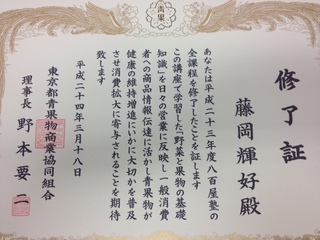 修了証
藤岡輝好殿
あなたは平成二十三年度八百屋塾の
全課程を修了したことを証します
この講座で学習した「野菜と果物の基礎
知識」を日々の営業に反映し一般消費
者への商品情報伝達に活かし青果物が
健康の維持増進にいかに大切かを普及
させ消費拡大に寄与されることを期待
致します
平成二十四年三月十八日
東京都青果物商業協同組合
理事長 野本要二